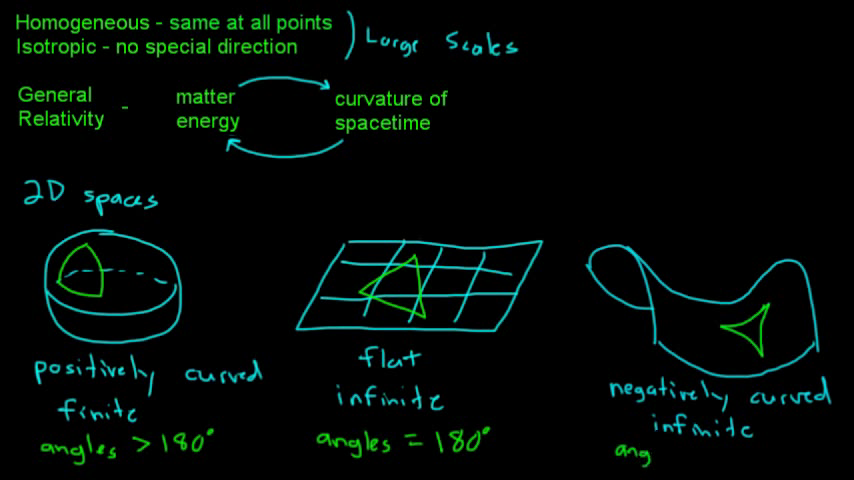 Homogeneous - same at all points
Isotropic - no special direction
Large Scales
General Relativity -
matter energy
curvature of spacetime
2D spaces
positively curved
finite
angles > 180°
flat
infinite
angles = 180°
negatively curved
infinite
ang